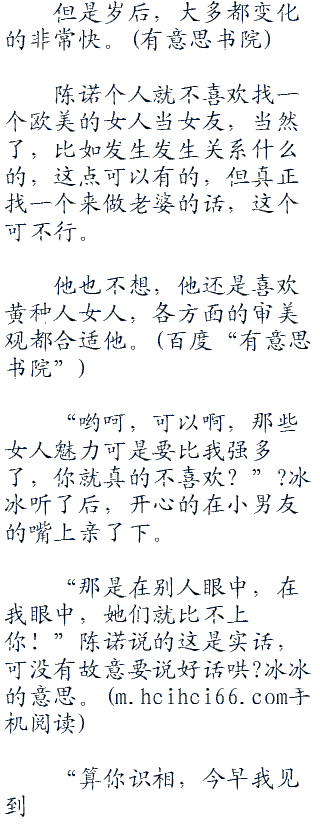 但是岁后，大多都变化
的非常快。(有意思书院)
陈诺个人就不喜欢找一
个欧美的女人当女友，当然
了，比如发生发生关系什么
的，这点可以有的，但真正
找一个来做老婆的话，这个
可不行。
他也不想，他还是喜欢
黄种人女人，各方面的审美
观都合适他。(百度“有意思
书院”)
“哟呵，可以啊，那些
女人魅力可是要比我强多
了，你就真的不喜欢？”?冰
冰听了后，开心的在小男友
的嘴上亲了下。
“那是在别人眼中，在
我眼中，她们就比不上
你！”陈诺说的这是实话，
可没有故意要说好话哄?冰冰
的意思。(m.hcihci66.com手
机阅读)
“算你识相，今早我见
到